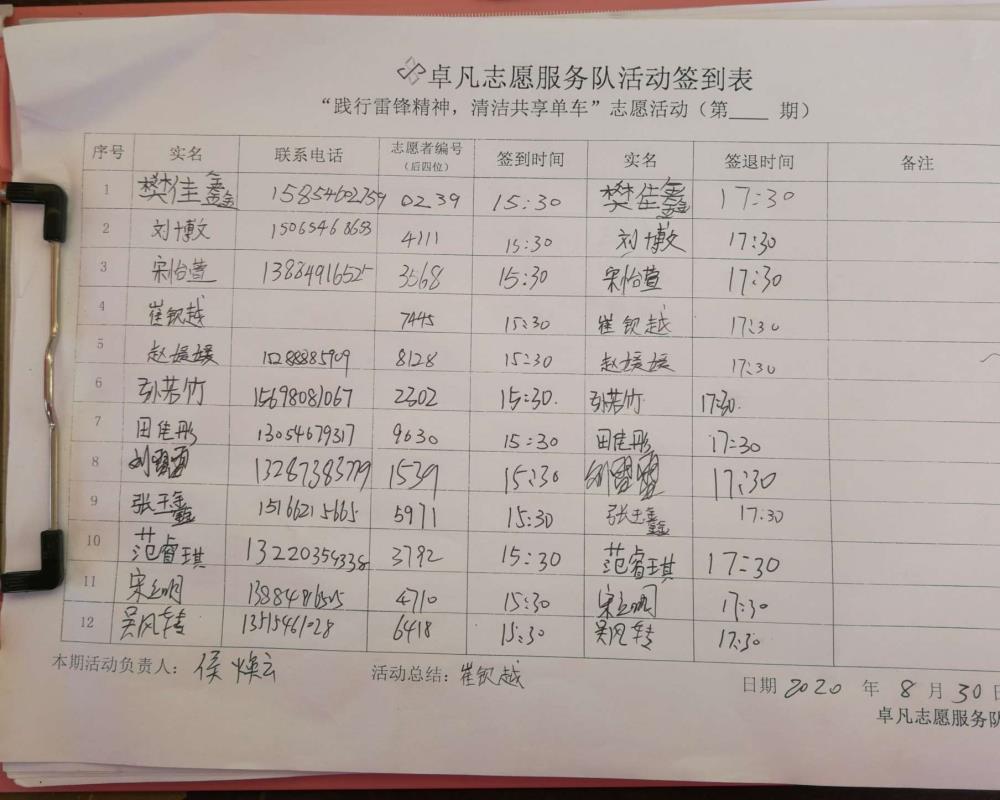 卓凡志愿服务队活动签到表
“践行雷锋精神，清洁共享单车”志愿活动（第____ 期）
序号 实名 联系电话 志愿者编号（后四位） 签到时间 实名 签退时间 备注
1 樊佳鑫 15854602759 0239 15:30 樊佳鑫 17:30
2 刘博文 15065468653 4111 15:30 刘博文 17:30
3 宋怡萱 13884916525 3568 15:30 宋怡萱 17:30
4 崔钦越 7445 15:30 崔钦越 17:30
5 赵媛媛 15288885909 8128 15:30 赵媛媛 17:30
6 孙若竹 15698081067 2302 15:30. 孙若竹 17:30.
7 田佳彤 13054679317 9630 15:30 田佳彤 17:30
8 13287383779 1539 15:30 17:30
9 张玉鑫 15166215665 5971 15:30 张玉鑫 17:30
10 范睿琪 13220354338 3792 15:30 范睿琪 17:30
11 4710 15:30 17:30
12 吴风转 13515461028 6418 15:30 吴风转 17:30
本期活动负责人：侯焕云 活动总结：崔钦越
日期 2020 年 8 月 30 日
卓凡志愿服务队